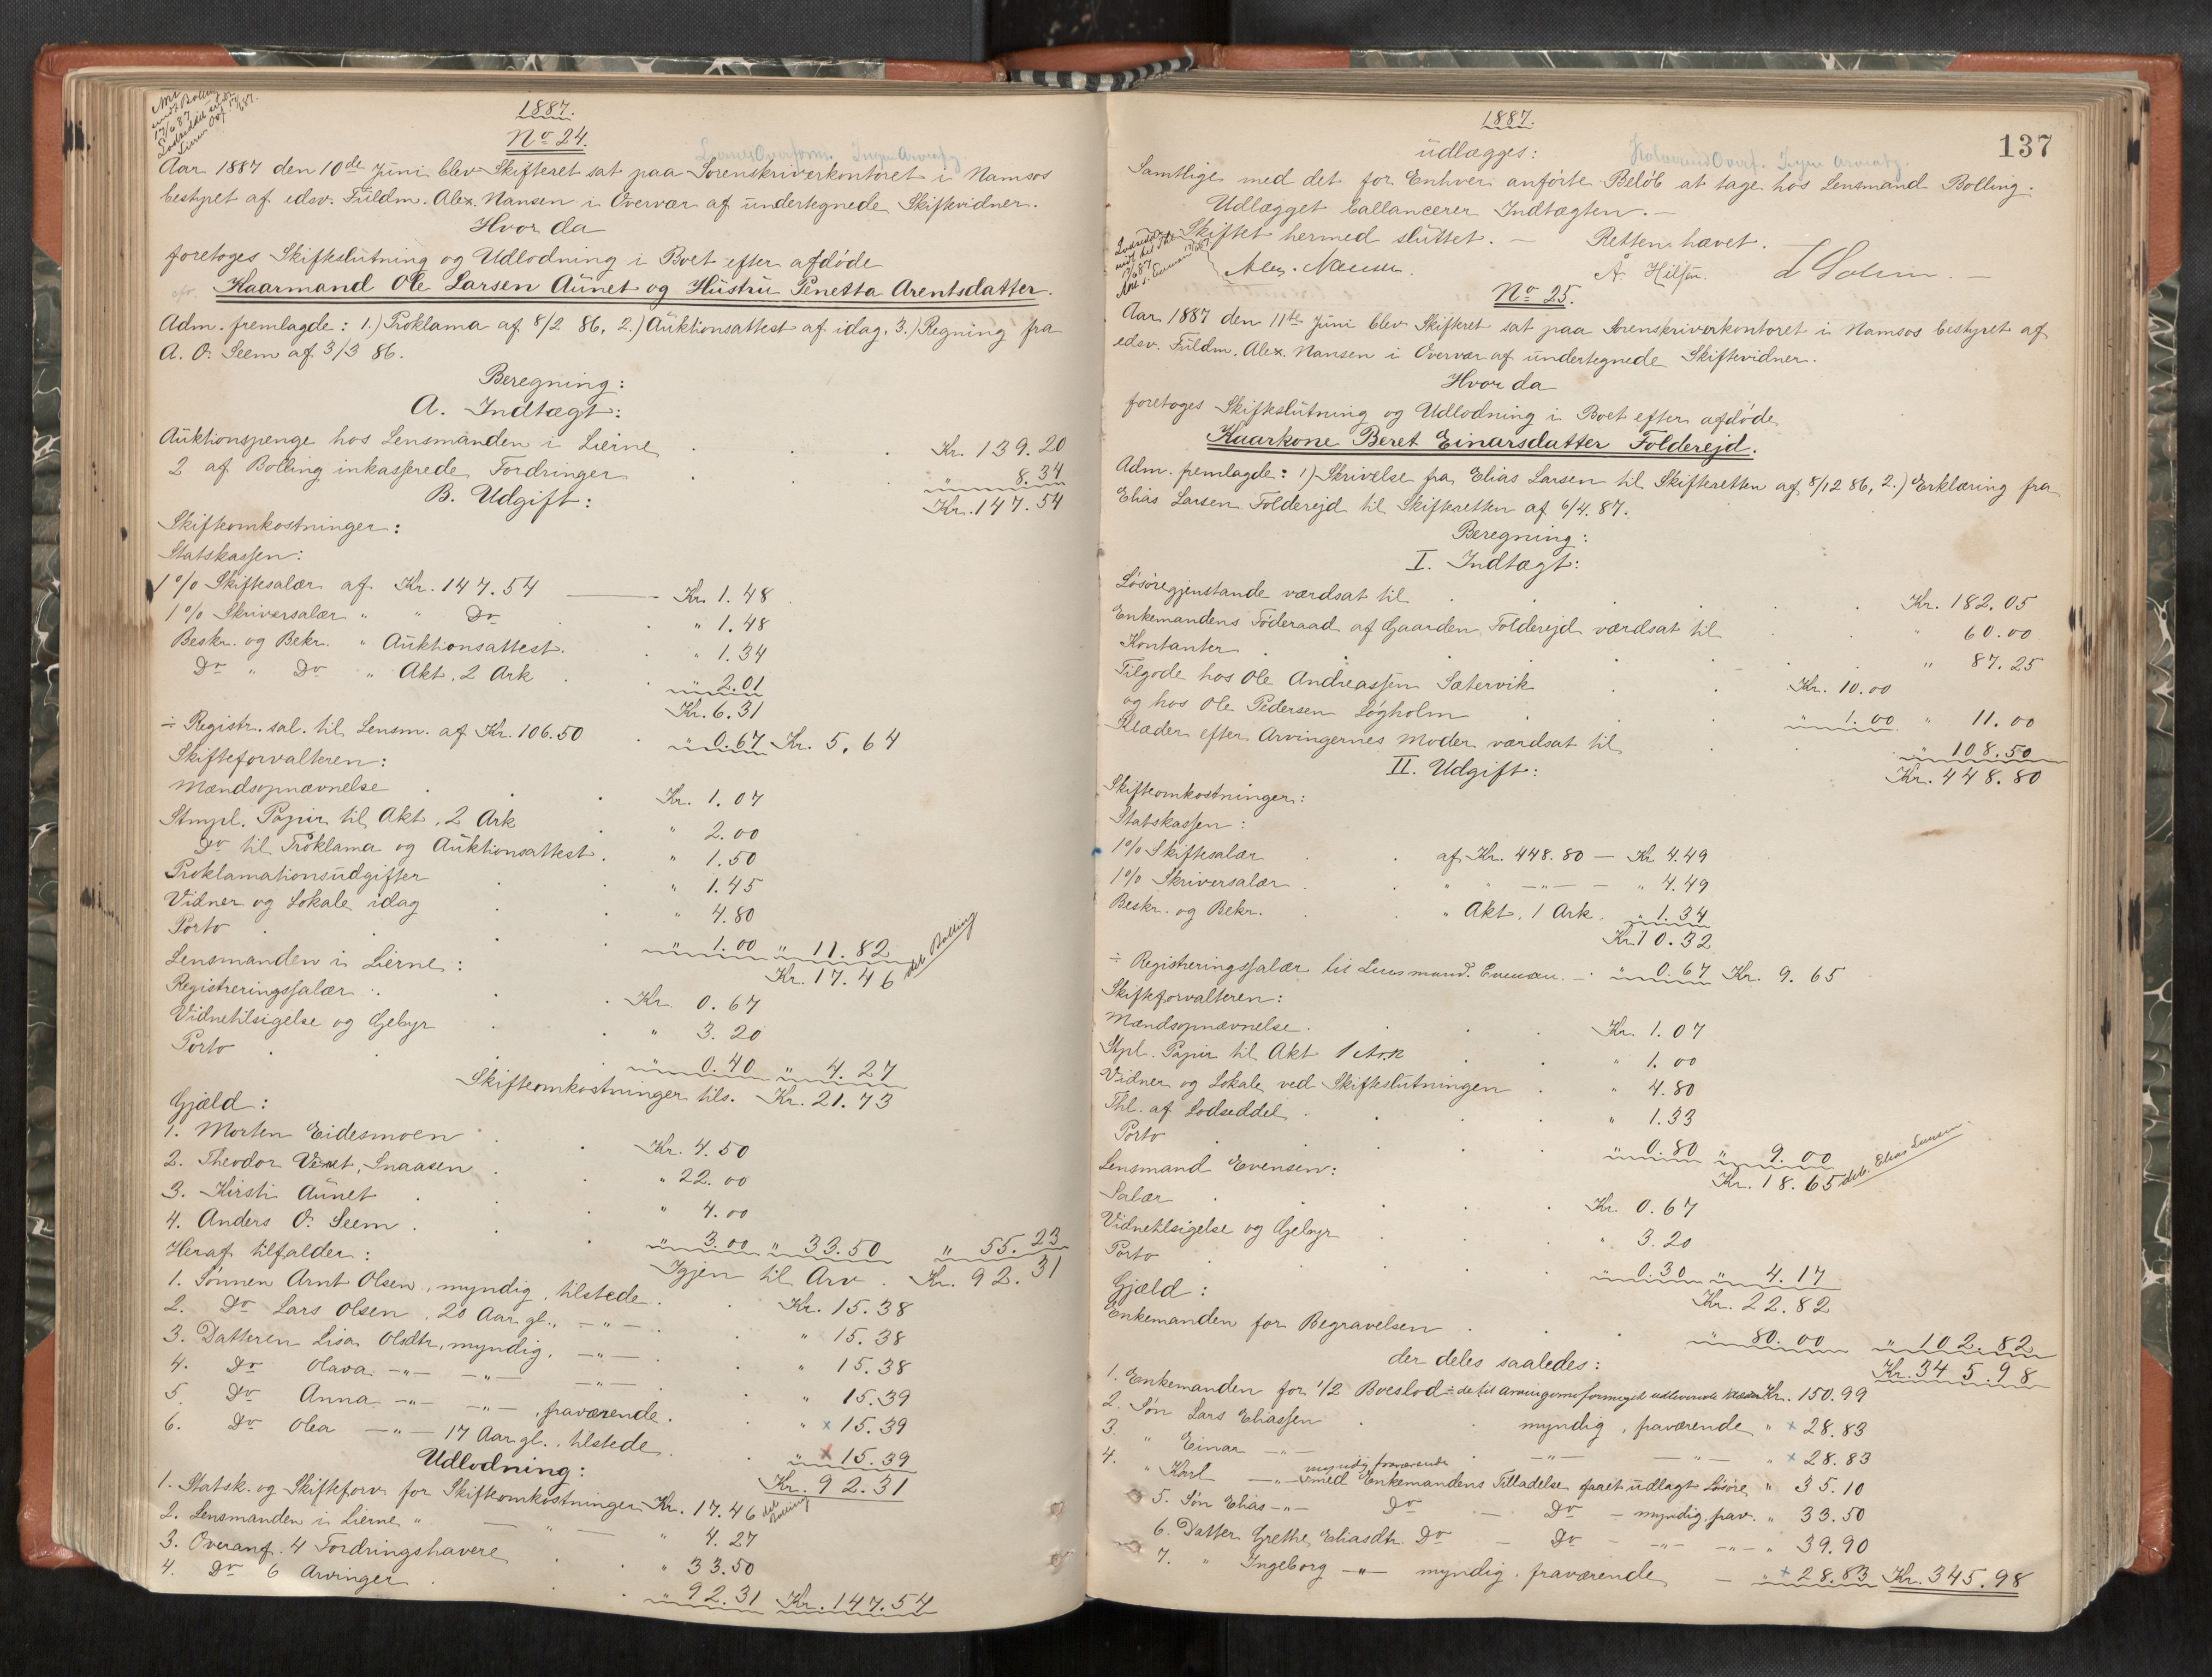 1887.
No 24.
Liernes Overform. Ingen Arveafg.
Aar 1887 den 10de Juni blev Skifteret sat paa Sorenskriverkontoret i Namsos
bestyret af edsv. Fuldm. Alex. Nansen i Overvær af undertegnede Skiftevidner.
Hvor da
foretoges Skifteslutning og Udlodning i Boet efter afdøde
Kaarmand Ole Larsen Aunet og Hustru Penetta Arentsdatter.
Adm. fremlagde: 1.) Proklama af 8/2 86, 2.) Auktionsattest af idag, 3.) Regning fra
A. O. Seem af 3/3 86.
Beregning:
A. Indtægt:
Auktionspenge hos Lensmanden i Lierne . . . Kr. 139.20
2 af Bolling inkasserede Fordringer . . . " 8.34
Kr. 147.54
B. Udgift:
Skifteomkostninger:
Statskassen:
1% Skiftesalær af Kr. 147.54 — Kr. 1.48
1% Skriversalær " " Do . " 1.48
Beskr. og Bekr. " Auktionsattest. . " 1.34
Do " Do " Akt, 2 Ark . . " 2.01
Kr. 6.31
÷ Registr. sal. til Lensm. af Kr. 106.50 . " 0.67 Kr. 5.64
Skifteforvalteren:
Mændsopnævnelse . . Kr. 1.07
Stmpl. Papir til Akt, 2 Ark . " 2.00
Do til Proklama og Auktionsattest. " 1.50
Proklamationsudgifter . . " 1.45
Vidner og Lokale idag . . " 4.80
Porto . . " 1.00 " 11.82
Kr. 17.46 del. Bolling
Lensmanden i Lierne:
Registreringssalær . . . Kr. 0.67
Vidnetilsigelse og Gebyr . . " 3.20
Porto . . " 0.40 " 4.27
Skifteomkostninger tils. Kr. 21.73
Gjæld:
1. Morten Eidesmoen . . Kr. 4.50
2. Theodor Vinet, Snaasen . . " 22.00
3. Kirsti Aunet . . " 4.00
4. Anders O. Seem . . " 3.00 " 33.50 " 55.23
Igjen til Arv . Kr. 92.31
Heraf tilfalder:
1. Sønnen Arnt Olsen, myndig, tilstede . . Kr. 15.38
2. Do Lars Olsen, 20 Aar gl., —"— . . " 15.38
3. Datteren Lisa Olsdtr, myndig, —"— . " 15.38
4. Do Olava —"— —"— —"— . " 15.39
5. Do Anna —"— —"—, fraværende . " x 15.39
6. Do Olea —"— 17 Aar gl., tilstede . " x 15.39
Kr. 92.31
Udlodning:
1. Statsk. og Skifteforv. for Skifteomkostninger Kr. 17.46 del. Bolling
2. Lensmanden i Lierne " — " — " 4.27
3. Overanf. 4 Fordringshavere . . " 33.50
4. Do 6 Arvinger . . " 92.31 Kr. 147.54
1887.
137
udlægges:
Kolvereid Overf. Ingen Arveafg.
Samtlige med det for Enhver anførte Beløb at tage hos Lensmand Bolling.
Udlægget ballancerer Indtægten. —
Skiftet hermed sluttet. — Retten hævet. —
Alex. Nansen. L Solum. —
No 25.
Aar 1887 den 11te Juni blev Skifteret sat paa Sorenskriverkontoret i Namsos bestyret af
edsv. Fuldm. Alex. Nansen i Overvær af undertegnede Skiftevidner.
Hvor da
foretoges Skifteslutning og Udlodning i Boet efter afdøde
Kaarkone Beret Einarsdatter Folderejd.
Adm. fremlagde: 1) Skrivelse fra Elias Larsen til Skifteretten af 8/12 86, 2.) Erklæring fra
Elias Larsen Folderejd til Skifteretten af 6/4. 87.
Beregning:
I. Indtægt:
Løsøregjenstande værdsat til . . . Kr. 182.05
Enkemandens Føderaad af Gaarden Folderejd værdsat til . " 60.00
Kontanter . . . . " 87.25
Tilgode hos Ole Andreassen Sætervik . . Kr. 10.00
og hos Ole Pedersen Løgholm . . " 1.00 " 11.00
Klæder efter Arvingernes Moder værdsat til . . " 108.50
Kr. 448.80
II. Udgift:
Skifteomkostninger:
Statskassen:
1% Skiftesalær . . af Kr. 448.80 — Kr 4.49
1% Skriversalær . . " " —"— — " 4.49
Beskr. og Bekr. . . " Akt, 1 Ark. " 1.34
Kr. 10.32
÷ Registreringssalær til Lensmand Evensen. — " 0.67 Kr. 9.65
Skifteforvalteren:
Mændsopnævnelse . . . Kr. 1.07
Stpl. Papir til Akt 1 Ark . . " 1.00
Vidner og Lokale ved Skifteslutningen . " 4.80
Thl. af Lodseddel . . . " 1.33
Porto . . . " 0.80 " 9.00
Kr. 18.65 deb. Elias Larsen.
Lensmand Evensen:
Salær . . . Kr. 0.67
Vidnetilsigelse og Gebyr . . " 3.20
Porto . . . " 0.30 " 4.17
Kr. 22.82
Gjæld:
Enkemanden for Begravelsen . . . " 80.00 " 102.82
Kr. 345.98
der deles saaledes:
1. Enkemanden for 1/2 Boeslod ÷ de til Arvingerne formeget udleverede Klæder Kr. 150.99
2. Søn Lars Eliassen . . myndig, fraværende " x 28.83
3. " Einar —"— —"— —"— " x 28.83
myndig fraværende
4. " Karl —"— med Enkemandens Tilladelse faaet udlagt Løsøre " 35.10
5. Søn Elias —"— Do — Do — myndig, frav. " 33.50
6. Datter Grethe Eliasdtr. Do — Do — —"— —"— " 39.90
7. " Ingeborg —"— myndig, fraværende — " x 28.83 Kr. 345.98